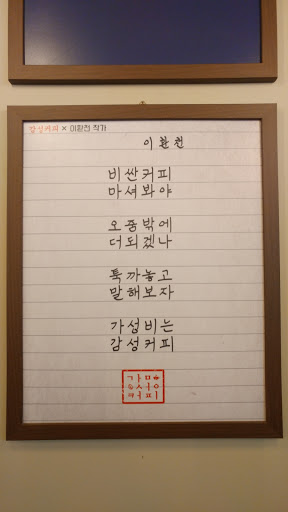 감성커피 × 이환천 작가
이환천
비싼커피
마셔봐야
오줌밖에
더되겠나
툭까놓고
말해보자
가성비는
감성커피
감성
커피